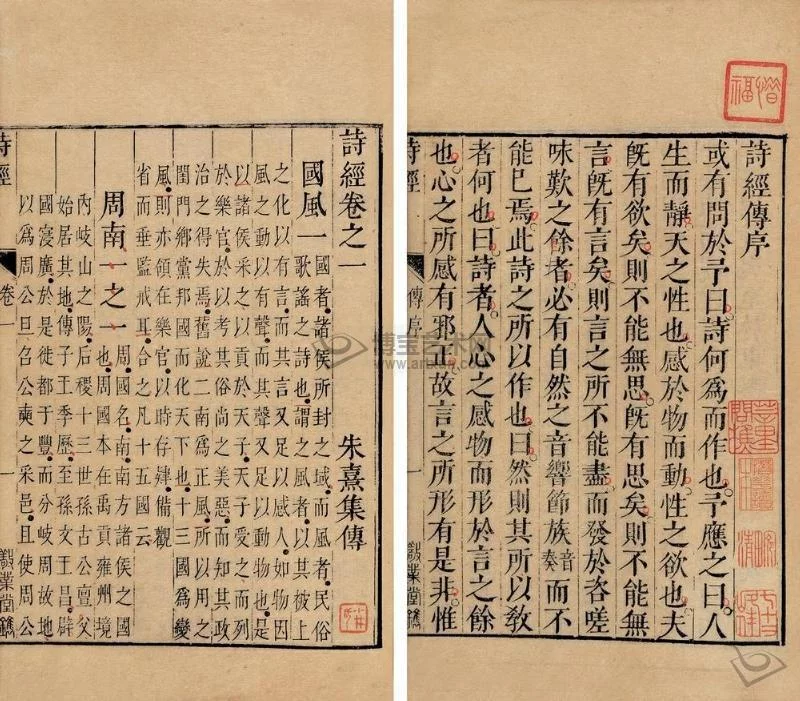 惜福
詩經傳序
或有問於予曰詩何為而作也予應之曰人
生而靜天之性也感於物而動性之欲也夫
既有欲矣則不能無思既有思矣則不能無
言既有言矣則言之所不能盡而發於咨嗟
咏歎之餘者必有自然之音響節族音奏而不
能已焉此詩之所以作也曰然則其所以教
者何也曰詩者人心之感物而形於言之餘
也心之所感有邪正故言之所形有是非惟
詩經 傳序 一 業堂鐫
詩經卷之一
朱熹集傳
國風一 國者諸侯所封之域而風者民俗
歌謠之詩也謂之風者以其被上
之化以有言而其言又足以感人如物因
風之動以有聲而其聲又足以動物也是
以諸侯采之以貢於天子天子受之而列
於樂官於以考其俗尚之美惡而知其政
治之得失焉舊說二南為正風所以用之
閨門鄉黨邦國而化天下也十三國為變
風則亦領在樂官以時存肄備觀
省而垂監戒耳合之凡十五國云
周南一之一 周國名南南方諸侯之國
也周國本在禹貢雍州境
內岐山之陽后稷十三世孫古公亶父
始居其地傳子王季歷至孫文王昌辟
國寖廣於是徙都于豐而分岐周故地
以為周公旦召公奭之采邑且使周公
詩經 卷一 一 業堂鐫
博宝艺术网